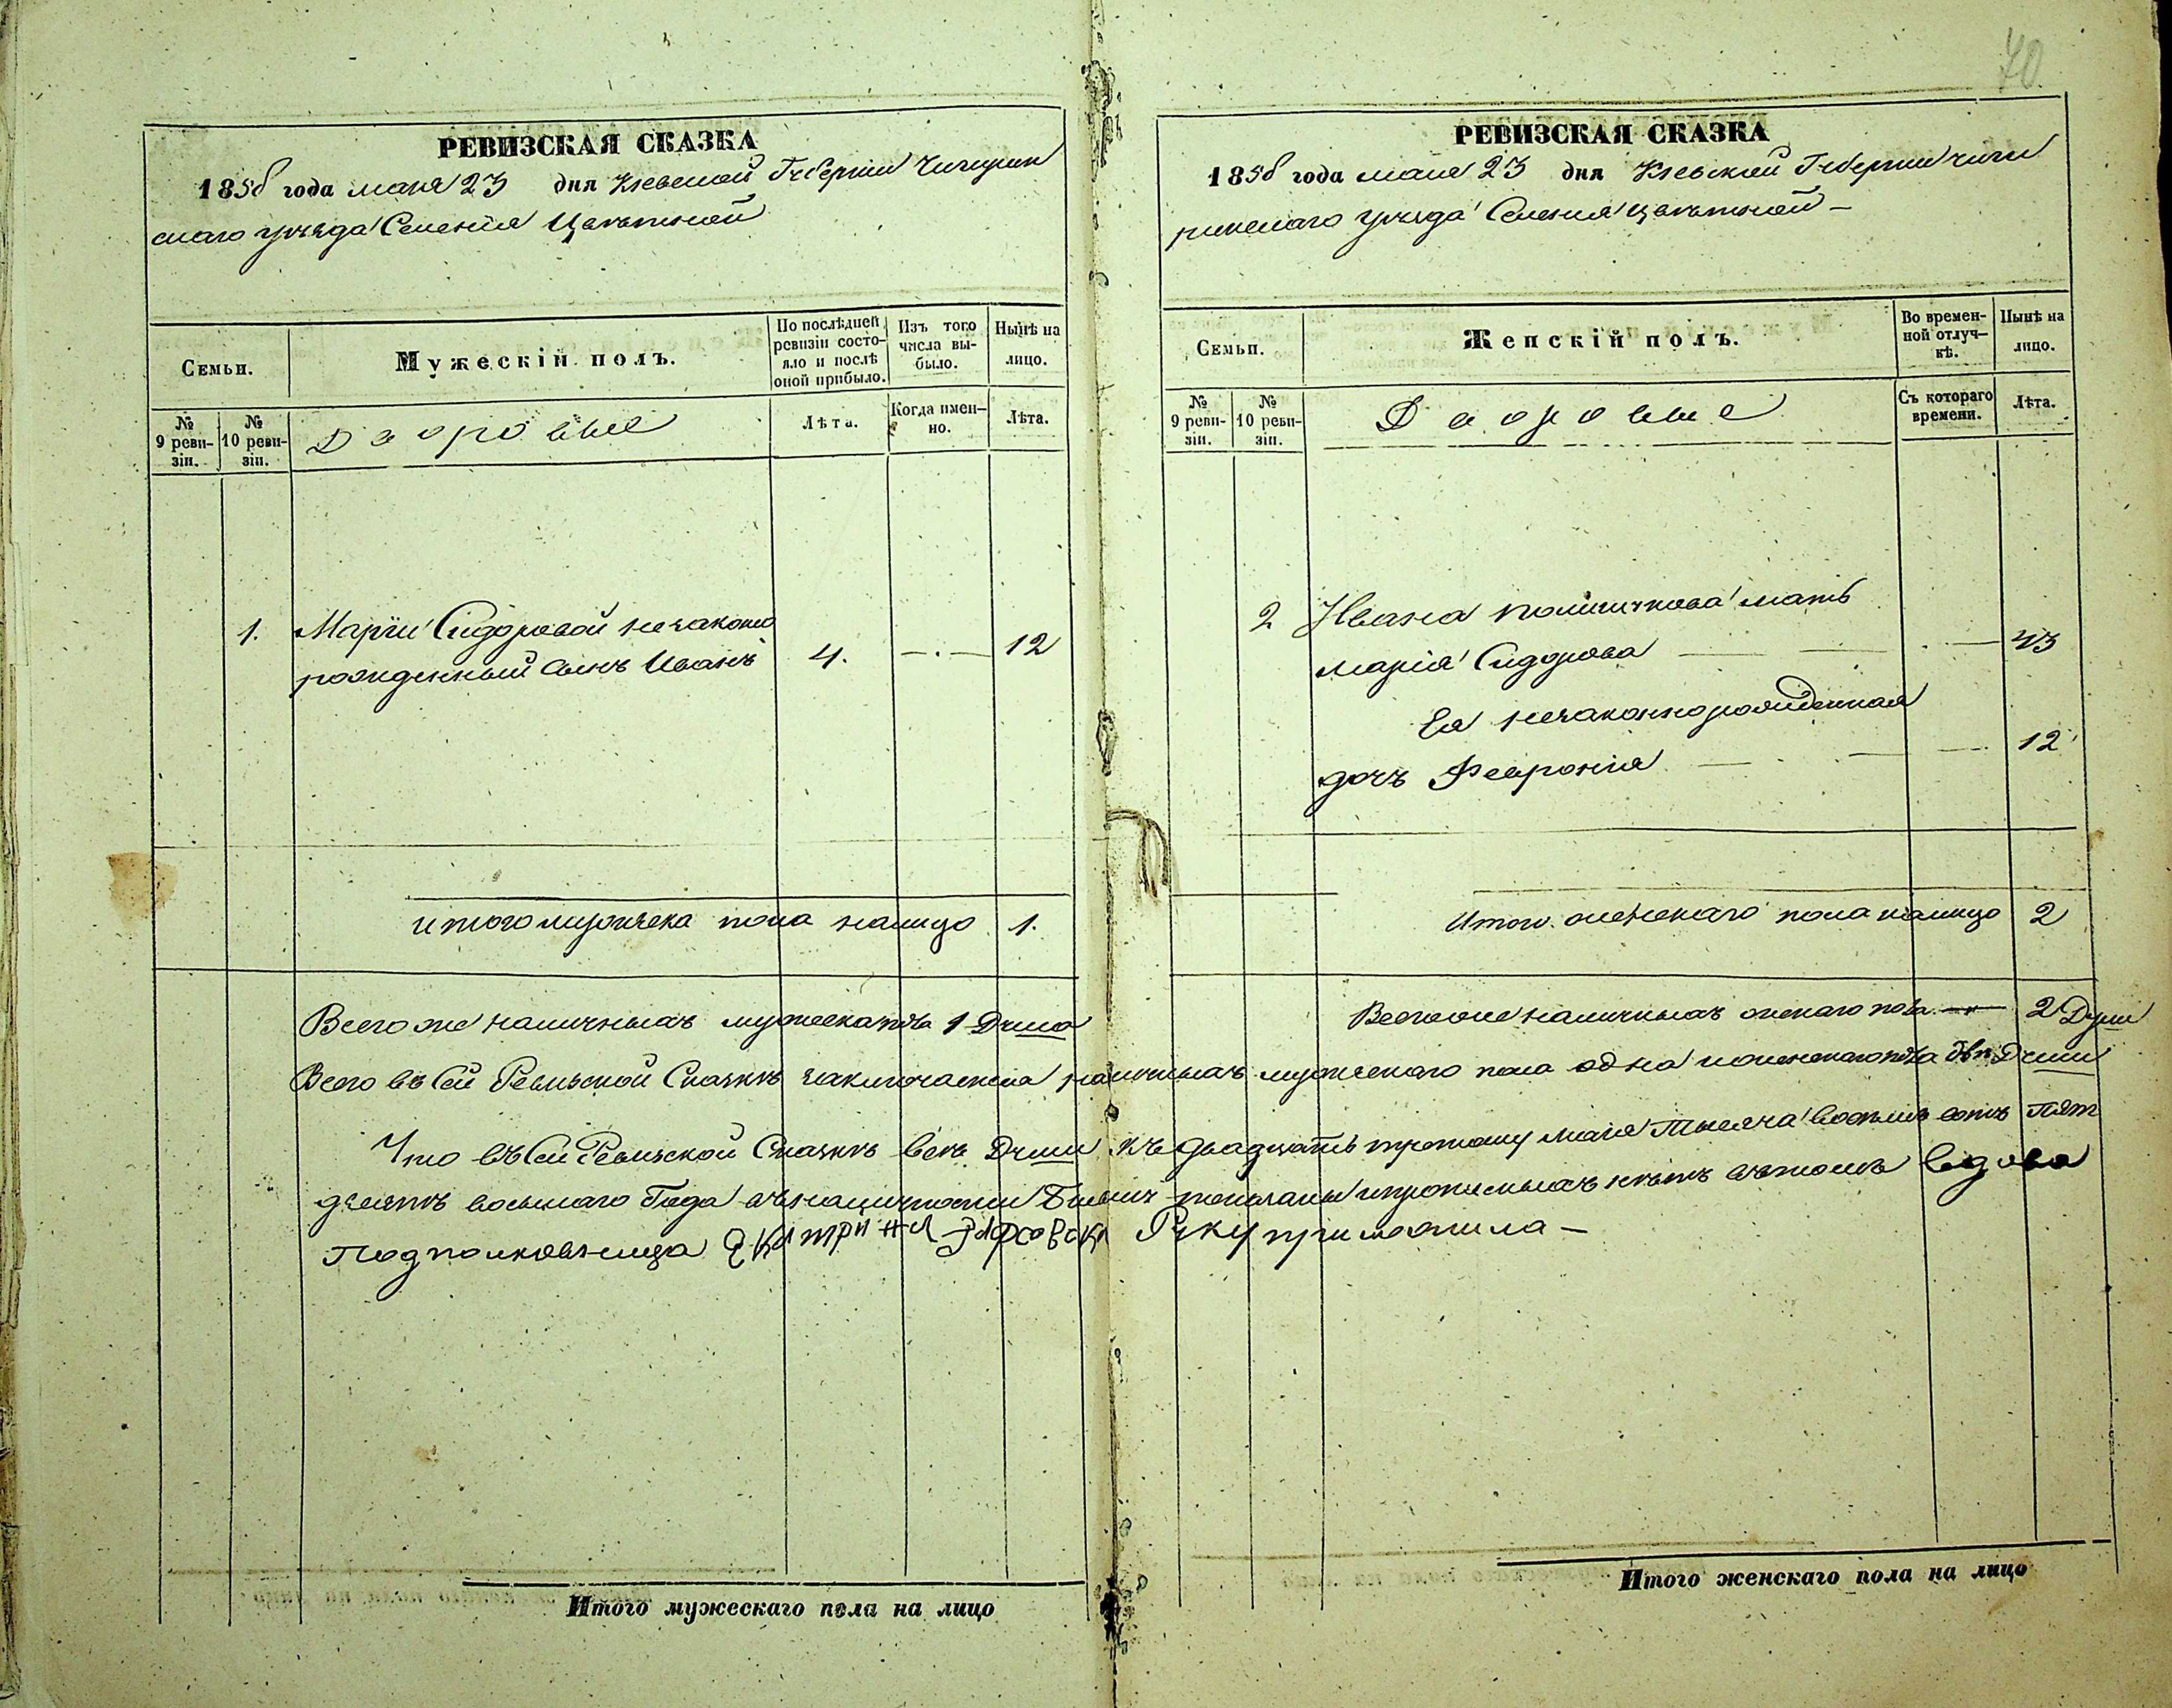 70
РЕВИЗСКАЯ СКАЗКА
1858 года мая 23 дня Кіевской Губерніи Чигирин
скаго уѣзда Селенія Цвѣтной
Семьи.
Мужескій полъ.
По послѣдней
ревизіи состо-
яло и послѣ
оной прибыло.
Изъ того
числа вы-
было.
Нынѣ на
лицо.
№
9 реви-
зіи.
№
10 реви-
зіи.
Дворовые
Лѣта.
Когда имен-
но.
Лѣта.
1. Маріи Сидоровой незаконно
рожденный сынъ Иванъ 4. —.— 12
итого мужеска пола налицо 1.
Всего же наличныхъ мужеска пола 1 Душа
РЕВИЗСКАЯ СКАЗКА
1858 года мая 23 дня Кіевской Губерніи Чиги
ринскаго уѣзда Селенія Цвѣтной —
Семьи.
Женскій полъ.
Во времен-
ной отлуч-
кѣ.
Нынѣ на
лицо.
№
9 реви-
зіи.
№
10 реви-
зіи.
Дворовые
Съ котораго
времени.
Лѣта.
2 Ивана мать
Марія Сидорова — 43
Ея незаконнорожденная
дочь Февронія — 12
Итого женскаго пола налицо 2
Всего же наличныхъ женскаго пола — 2 Души
Всего въ сей Ревизской Сказкѣ заключается наличныхъ мужескаго пола одна и женскаго пола двѣ Души
Что въ сей Ревизской Сказкѣ всѣ Души къ двадцать третьему мая тысяча восемь сотъ пят
десятъ восьмаго Года въ наличности показаны и прописныхъ нѣтъ въ томъ вдова
Подполковница Руку приложила —
Итого мужескаго пола на лицо
Итого женскаго пола на лицо